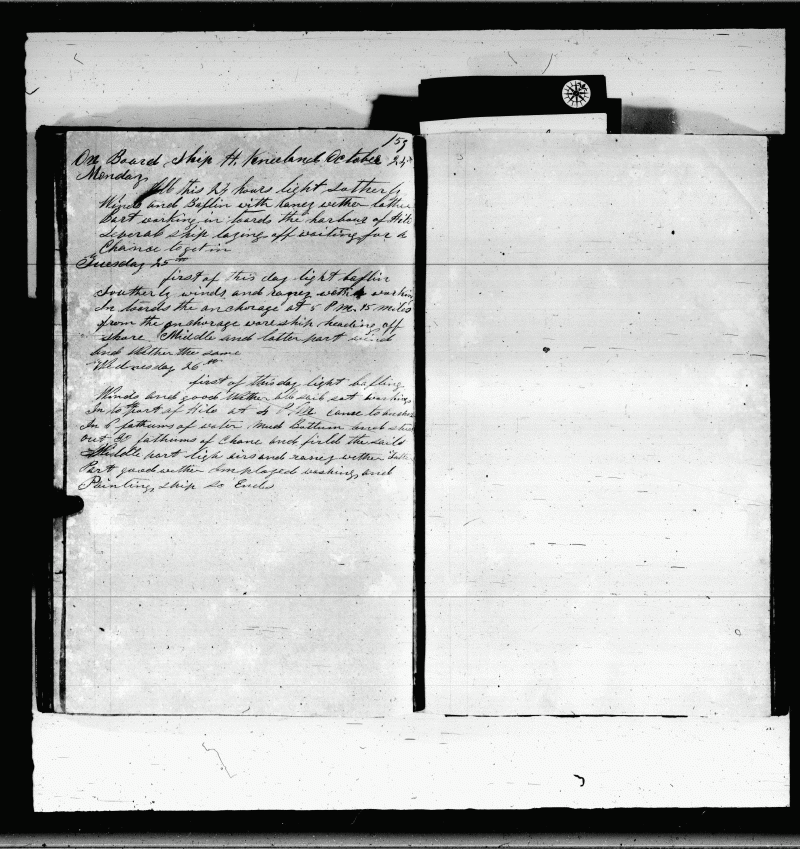 153
On Board Ship H. Kneeland October 24th
Monday
All this 24 hours light Sutherly
Winds and Baflin with raney wether latter
Part working in toards the harbour of Hilo
Several ship laying off waiting for a
Chance to get in
Tuesday 25th
first of this day light baflin
Southerly winds and raney wether working
In toards the anchorage at 5 P.M. 15 miles
from the anchorage wore ship heading off
shore Middle and latter part wind
and Wether the same
Wednesday 26th
first of this day light bafling
Winds and good Wether all sail set working
In to port of Hilo at 4 P.M. came to anchor
In 6 fathums of water Mud Bottum and
out 30 fathums of Chane and firld the sails
Middle part ligh airs and raney wether latter
Part good wether Imployed washing and
Painting ship So Ends